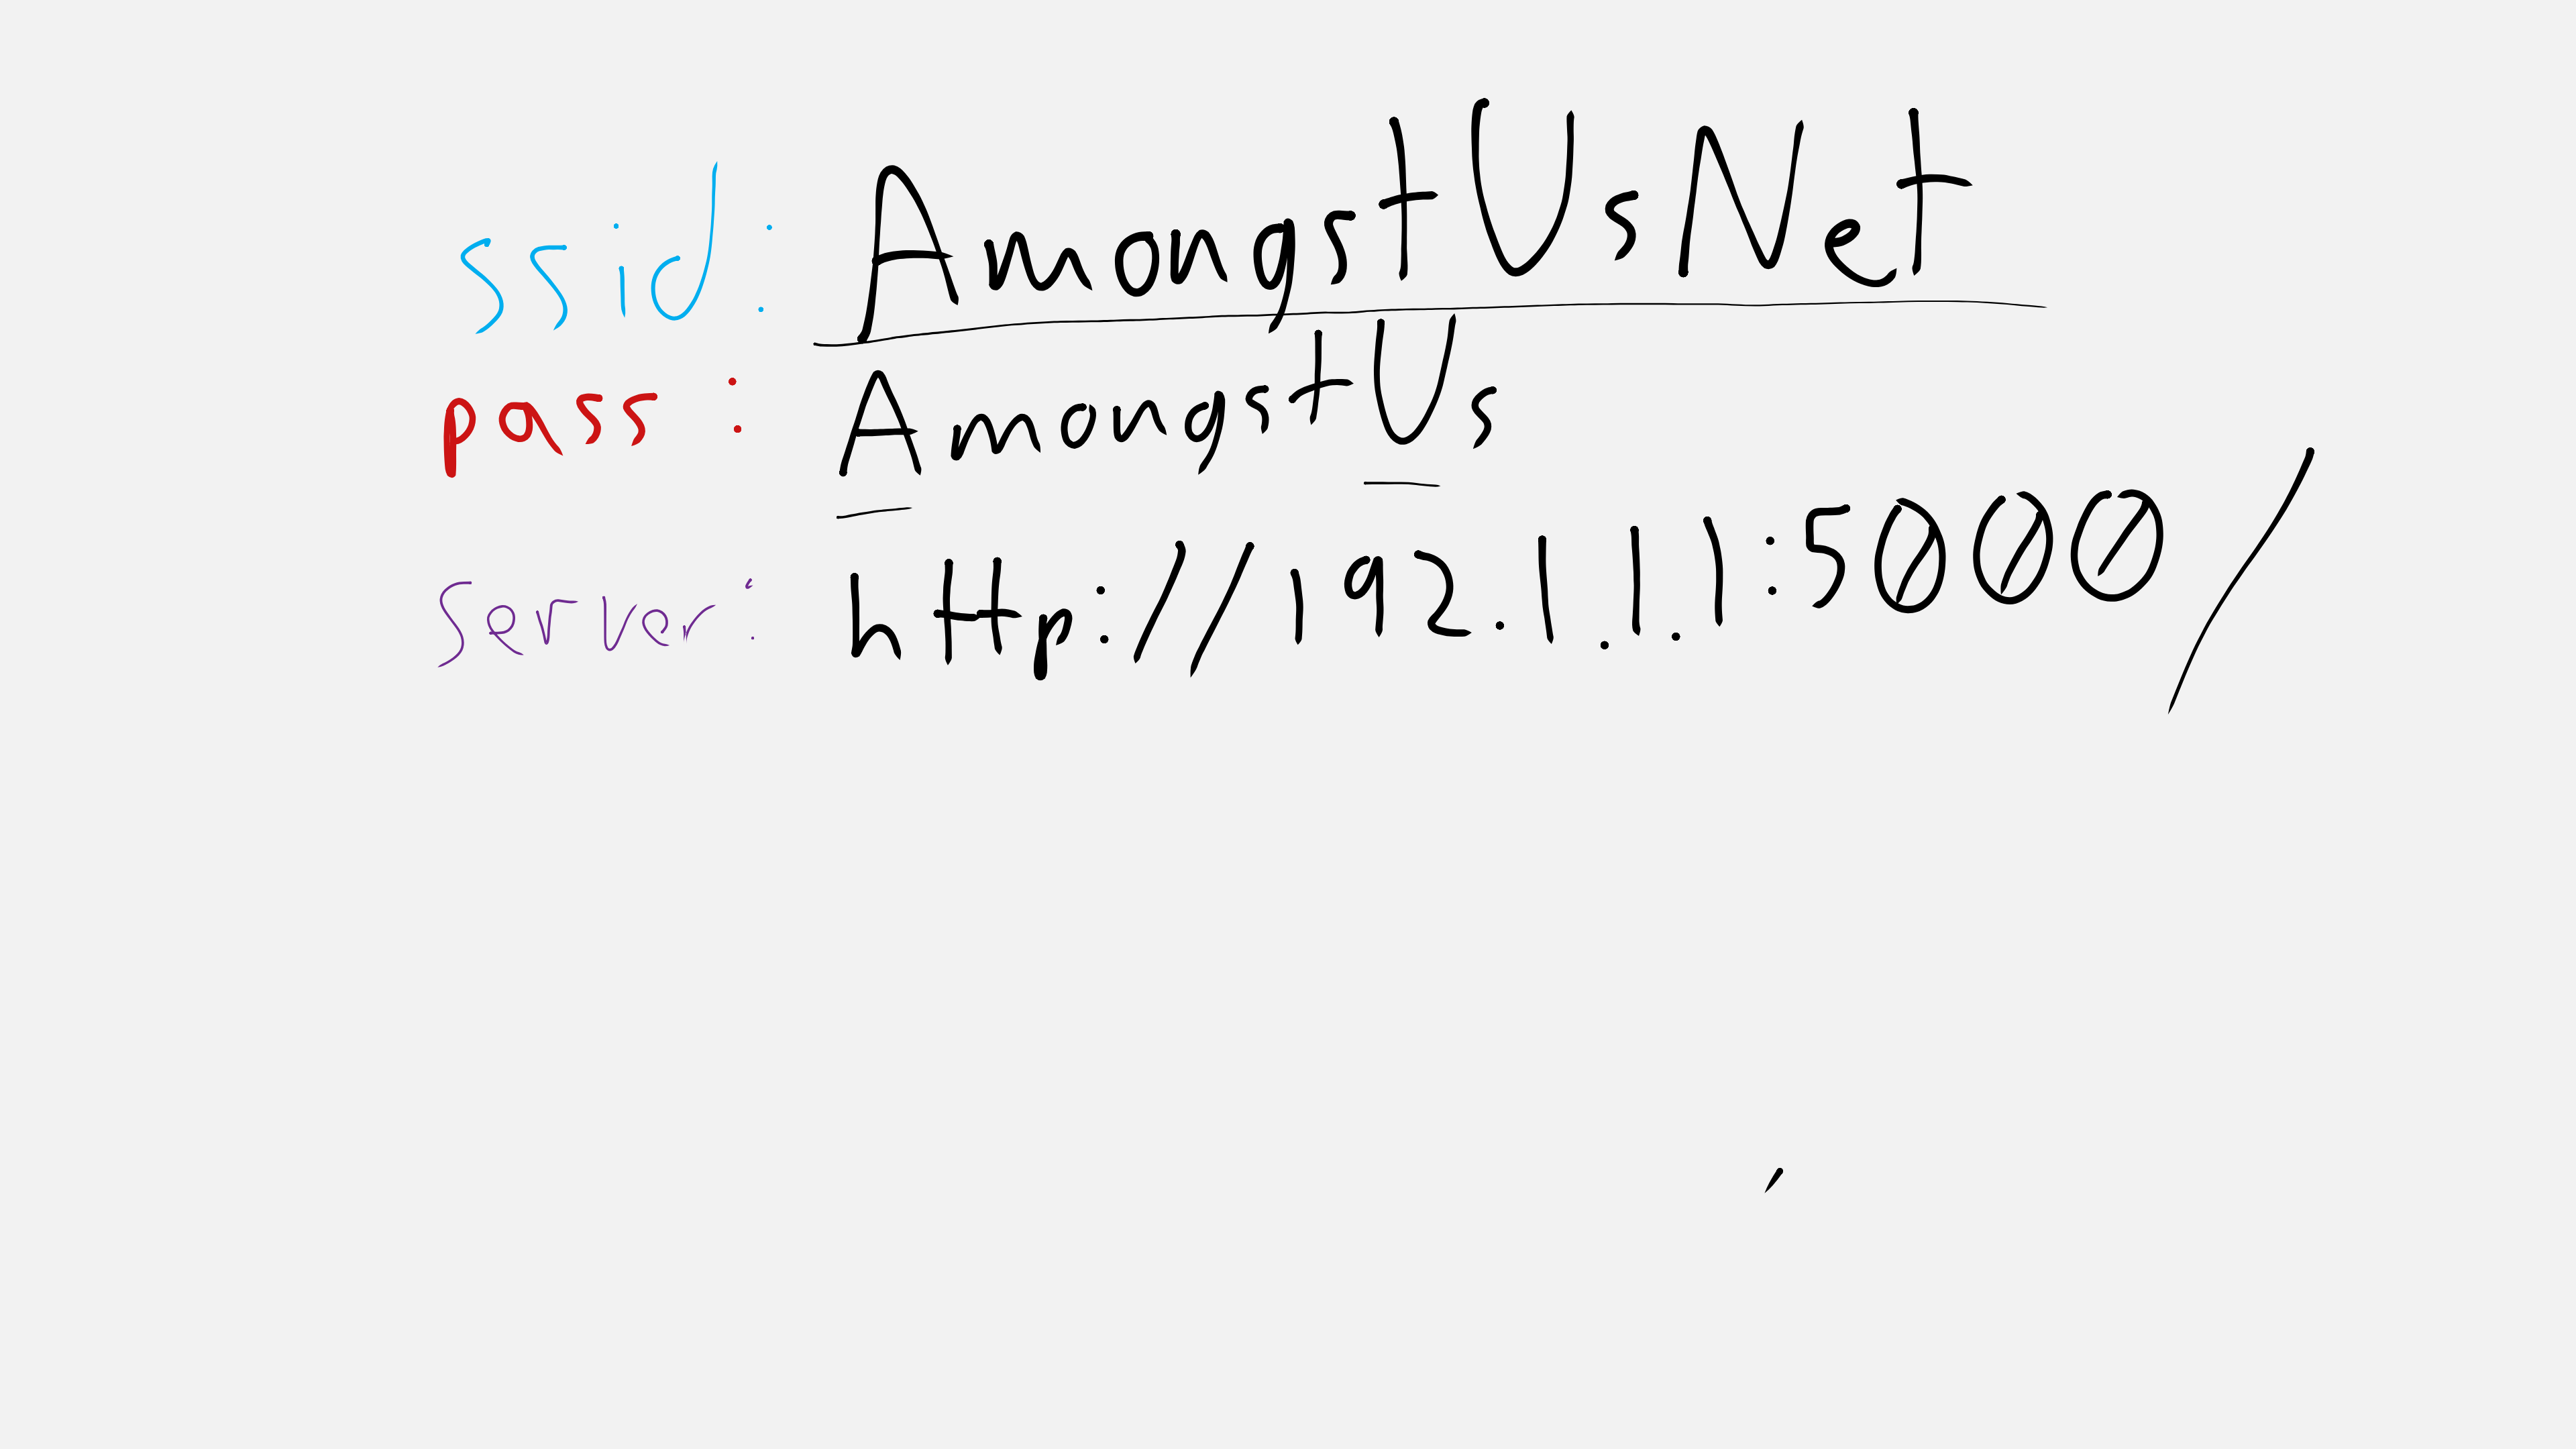 ssid: AmongstUsNet
pass: AmongstUs
Server: http://192.1.1.1:5000/